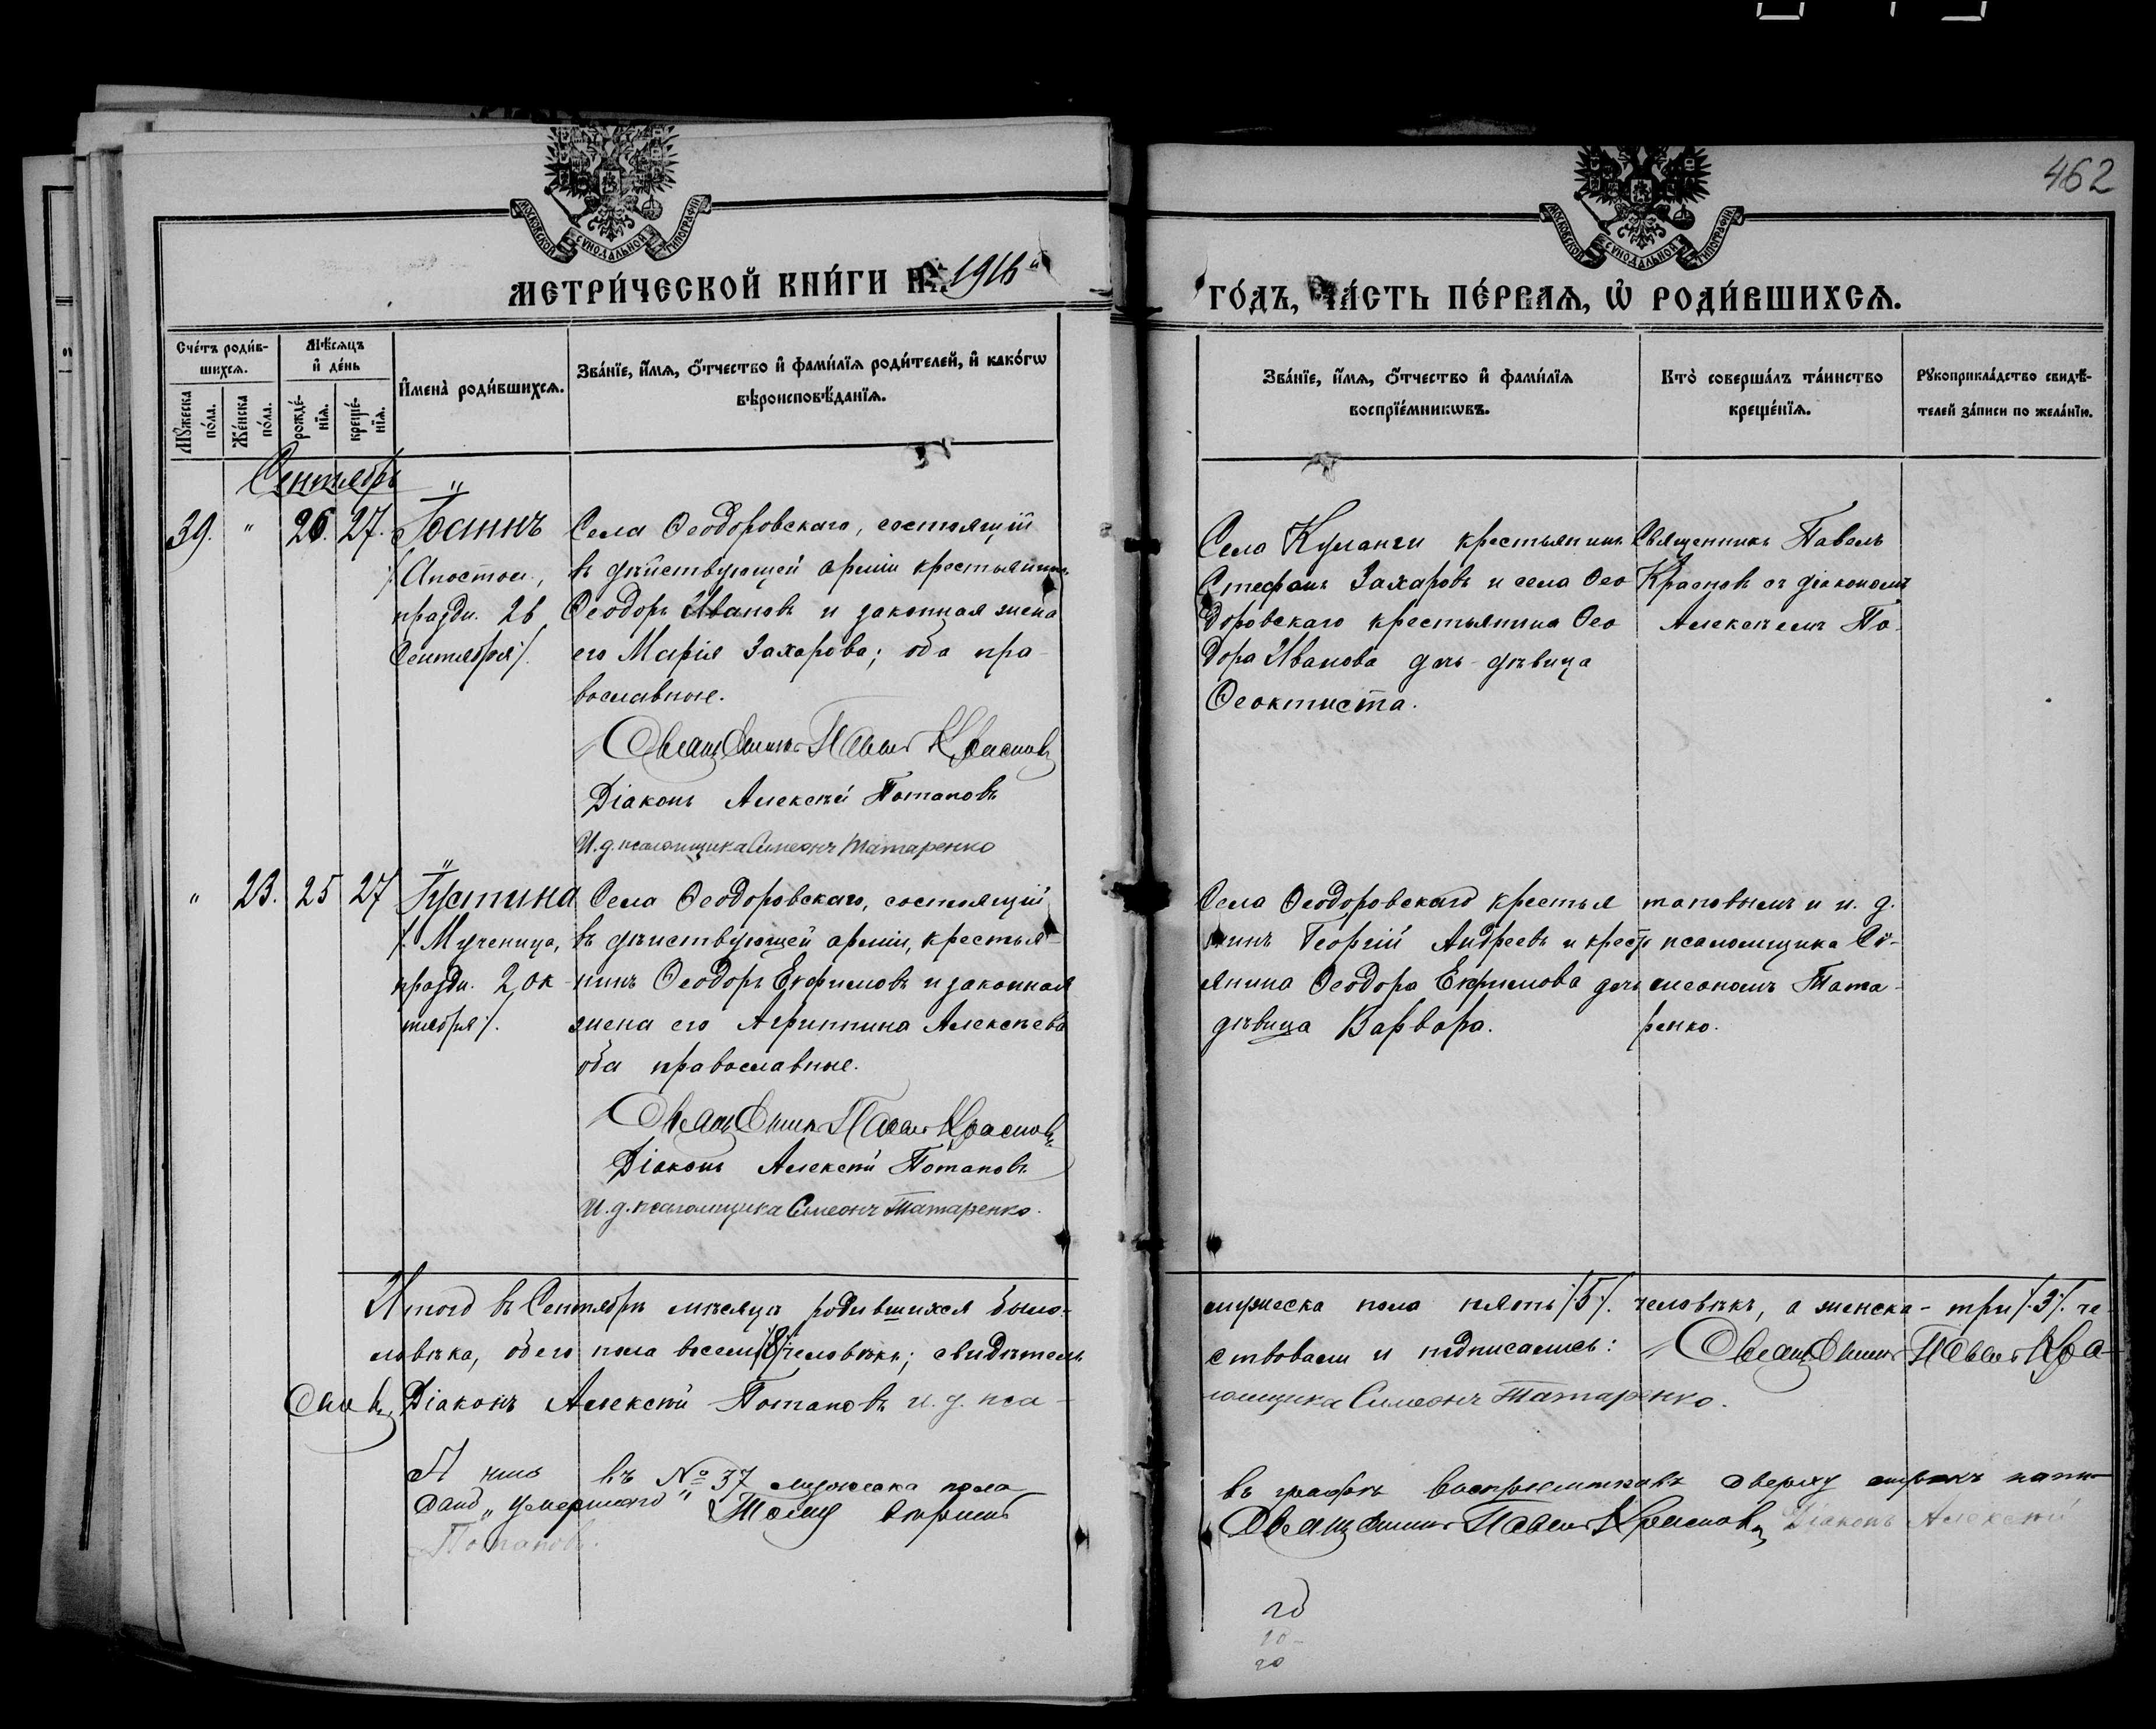 462
МОСКОВСКОЙ СѴНОДАЛЬНОЙ ТИПОГРАФІИ
МОСКОВСКОЙ СѴНОДАЛЬНОЙ ТИПОГРАФІИ
МЕТРИ́ЧЕСКОЙ КНИ́ГИ НА 1916 й
ГО́ДЪ, ЧА́СТЬ ПЕ́РВАѦ, Ѡ РОДИ́ВШИХСѦ.
Сче́тъ роди́в-
шихсѧ.
Мꙋ́жеска по́ла.
Же́нска по́ла.
Мѣ́сѧцъ и҆ де́нь
рожде́-нїѧ.
креще́-нїѧ.
И҆мена̀ роди́вшихсѧ.
Зва́нїе, и҆́мѧ, ѻ҆́тчество и҆ фами́лїѧ роди́телей, и҆ како́гѡ
вѣроисповѣ́данїѧ.
Зва́нїе, и҆́мѧ, ѻ҆́тчество и҆ фами́лїѧ
воспрїе́мникѡвъ.
Кто̀ соверша́лъ та́инство
креще́нїѧ.
Рꙋкоприкла́дство свидѣ́-
телей за́писи по жела́нїю.
Сентябрь
39. " 26. 27. Іоаннъ
/: Апостол.,
праздн. 26
Сентября :/.
Села Ѳеодоровскаго, состоящій
въ дѣйствующей арміи крестьянинъ
Ѳеодоръ Ивановъ и законная жена
его Марія Захарова; оба пра-
вославные.
Священникъ Павелъ Красновъ
Діаконъ Алексѣй Потаповъ
И. д. псаломщика Симеонъ Татаренко
Села Куланги крестьянинъ
Стефанъ Захаровъ и села Ѳео
доровскаго крестьянина Ѳео
дора Иванова дочь-дѣвица
Ѳеоктиста.
Священникъ Павелъ
Красновъ съ діакономъ
Алексѣемъ По-
" 23. 25 27 Іустина
/: Мученица,
праздн. 2 ок-
тября :/.
Села Ѳеодоровскаго, состоящій
въ дѣйствующей арміи, крестья-
нинъ Ѳеодоръ Евфимовъ и законная
жена его Агриппина Алексѣева
оба православные.
Священникъ Павелъ Красновъ
Діаконъ Алексѣй Потаповъ
И. д. псаломщика Симеонъ Татаренко.
Села Ѳеодоровскаго крестья
нинъ Георгій Андреевъ и крестъ
янина Ѳеодора Евфимова дочь
дѣвица Варвара.
таповымъ и и. д.
псаломщика Си-
меономъ Тата-
ренко.
Итого въ Сентябрѣ мѣсяцѣ родившихся было:
мужеска пола пять /:5:/. человѣкъ, а женска - три /:3:/. че-
ловѣка, обего пола восемь /:8:/ человѣкъ; свидѣтель
ствовали и подписались: Священникъ Павелъ Кра-
сновъ Діаконъ Алексѣй Потаповъ и. д. пса-
ломщика Симеонъ Татаренко.
А что въ № 37 мужеска пола
въ графѣ воспріемниковъ сверху строкъ напи-
сано „умершаго" Тому вѣримъ
Священникъ Павелъ Красновъ Діаконъ Алексѣй
Потаповъ.